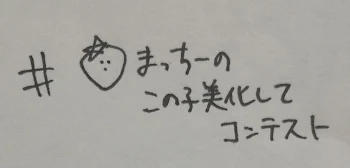 # まっちーの
この子美化して
コンテスト